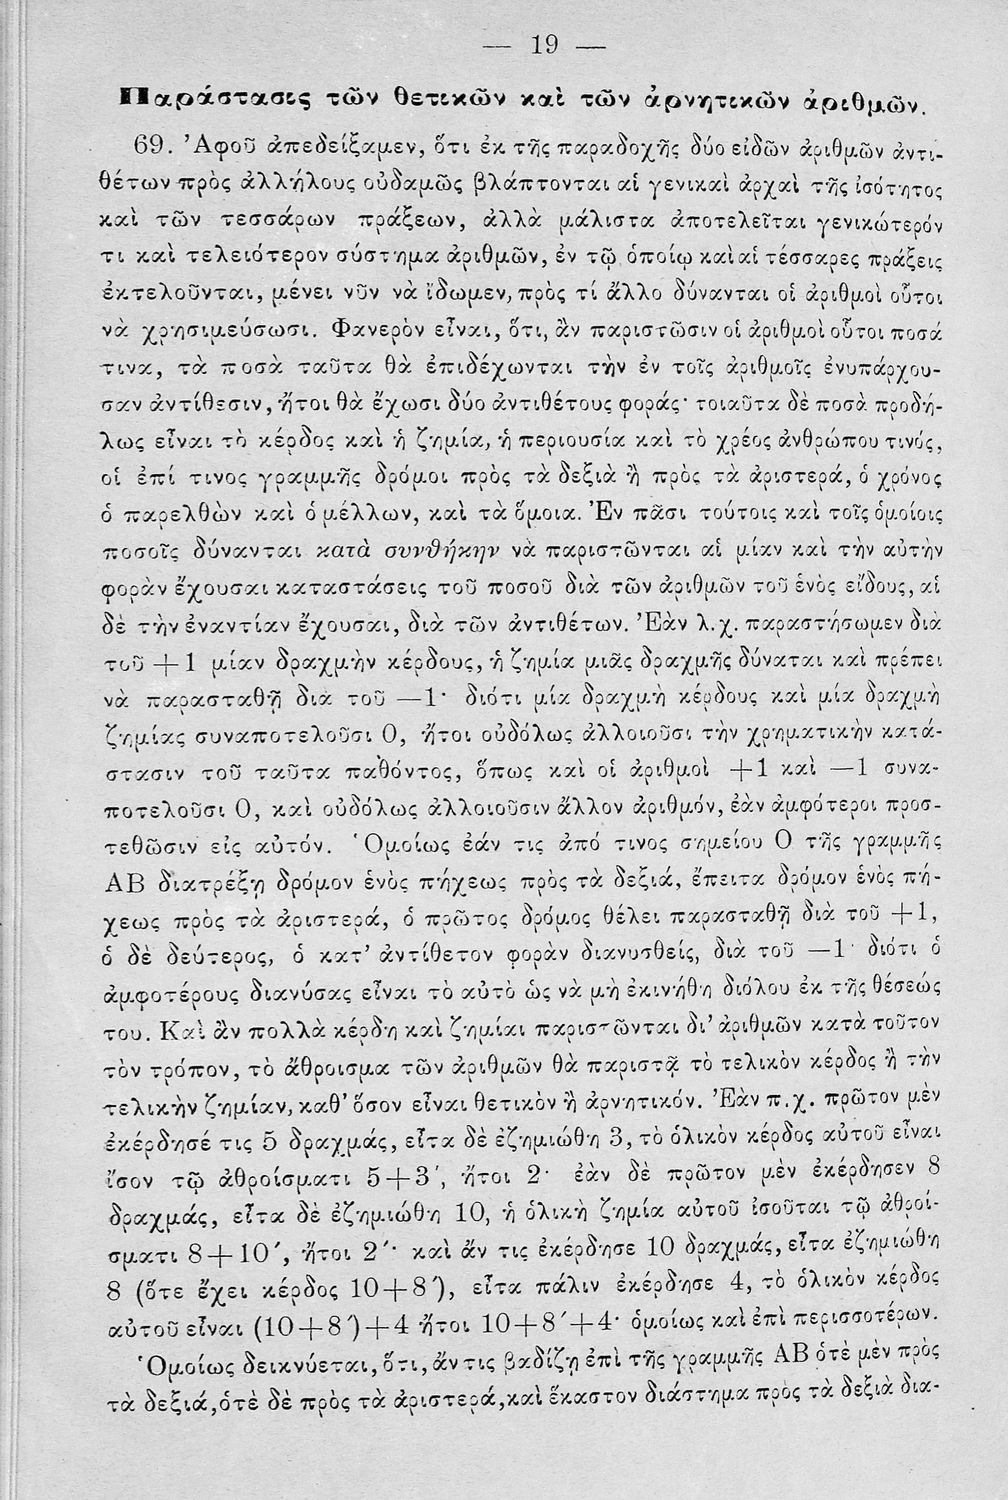 — 19 —
Παράστασις τῶν θετικῶν καὶ τῶν ἀρνητικῶν ἀριθμῶν.
69. Ἀφοῦ ἀπεδείξαμεν, ὅτι ἐκ τῆς παραδοχῆς δύο εἰδῶν ἀριθμῶν ἀντι-
θέτων πρὸς ἀλλήλους οὐδαμῶς βλάπτονται αἱ γενικαὶ ἀρχαὶ τῆς ἰσότητος
καὶ τῶν τεσσάρων πράξεων, ἀλλὰ μάλιστα ἀποτελεῖται γενικώτερόν
τι καὶ τελειότερον σύστημα ἀριθμῶν, ἐν τῷ ὁποίῳ καὶ αἱ τέσσαρες πράξεις
ἐκτελοῦνται, μένει νῦν νὰ ἴδωμεν, πρὸς τί ἄλλο δύνανται οἱ ἀριθμοὶ οὗτοι
νὰ χρησιμεύσωσι. Φανερὸν εἶναι, ὅτι, ἂν παριστῶσιν οἱ ἀριθμοὶ οὗτοι ποσά
τινα, τὰ ποσὰ ταῦτα θὰ ἐπιδέχωνται τὴν ἐν τοῖς ἀριθμοῖς ἐνυπάρχου-
σαν ἀντίθεσιν, ἤτοι θὰ ἔχωσι δύο ἀντιθέτους φοράς· τοιαῦτα δὲ ποσὰ προδή-
λως εἶναι τὸ κέρδος καὶ ἡ ζημία, ἡ περιουσία καὶ τὸ χρέος ἀνθρώπου τινός,
οἱ ἐπί τινος γραμμῆς δρόμοι πρὸς τὰ δεξιὰ ἢ πρὸς τὰ ἀριστερά, ὁ χρόνος
ὁ παρελθὼν καὶ ὁ μέλλων, καὶ τὰ ὅμοια. Ἐν πᾶσι τούτοις καὶ τοῖς ὁμοίοις
ποσοῖς δύνανται κατὰ συνθήκην νὰ παριστῶνται αἱ μίαν καὶ τὴν αὐτὴν
φορὰν ἔχουσαι καταστάσεις τοῦ ποσοῦ διὰ τῶν ἀριθμῶν τοῦ ἑνὸς εἴδους, αἱ
δὲ τὴν ἐναντίαν ἔχουσαι, διὰ τῶν ἀντιθέτων. Ἐὰν λ.χ. παραστήσωμεν διὰ
τοῦ +1 μίαν δραχμὴν κέρδους, ἡ ζημία μιᾶς δραχμῆς δύναται καὶ πρέπει
νὰ παρασταθῇ διὰ τοῦ —1· διότι μία δραχμὴ κέρδους καὶ μία δραχμὴ
ζημίας συναποτελοῦσι 0, ἤτοι οὐδόλως ἀλλοιοῦσι τὴν χρηματικὴν κατά-
στασιν τοῦ ταῦτα παθόντος, ὅπως καὶ οἱ ἀριθμοὶ +1 καὶ —1 συνα-
ποτελοῦσι 0, καὶ οὐδόλως ἀλλοιοῦσιν ἄλλον ἀριθμόν, ἐὰν ἀμφότεροι προσ-
τεθῶσιν εἰς αὐτόν. Ὁμοίως ἐάν τις ἀπό τινος σημείου Ο τῆς γραμμῆς
ΑΒ διατρέξῃ δρόμον ἑνὸς πήχεως πρὸς τὰ δεξιά, ἔπειτα δρόμον ἑνὸς πή-
χεως πρὸς τὰ ἀριστερά, ὁ πρῶτος δρόμος θέλει παρασταθῆ διὰ τοῦ +1,
ὁ δὲ δεύτερος, ὁ κατ' ἀντίθετον φορὰν διανυσθείς, διὰ τοῦ —1· διότι ὁ
ἀμφοτέρους διανύσας εἶναι τὸ αὐτὸ ὡς νὰ μὴ ἐκινήθη διόλου ἐκ τῆς θέσεώς
του. Καὶ ἂν πολλὰ κέρδη καὶ ζημίαι παριστῶνται δι' ἀριθμῶν κατὰ τοῦτον
τὸν τρόπον, τὸ ἄθροισμα τῶν ἀριθμῶν θὰ παριστᾷ τὸ τελικὸν κέρδος ἢ τὴν
τελικὴν ζημίαν, καθ' ὅσον εἶναι θετικὸν ἢ ἀρνητικόν. Ἐὰν π.χ. πρῶτον μὲν
ἐκέρδησέ τις 5 δραχμάς, εἶτα δὲ ἐζημιώθη 3, τὸ ὁλικὸν κέρδος αὐτοῦ εἶναι
ἴσον τῷ ἀθροίσματι 5+3′, ἤτοι 2· ἐὰν δὲ πρῶτον μὲν ἐκέρδησεν 8
δραχμάς, εἶτα δὲ ἐζημιώθη 10, ἡ ὁλικὴ ζημία αὐτοῦ ἰσοῦται τῷ ἀθροί-
σματι 8+10′, ἤτοι 2′· καὶ ἄν τις ἐκέρδησε 10 δραχμάς, εἶτα ἐζημιώθη
8 (ὅτε ἔχει κέρδος 10+8′), εἶτα πάλιν ἐκέρδησε 4, τὸ ὁλικὸν κέρδος
αὐτοῦ εἶναι (10+8′)+4 ἤτοι 10+8′+4· ὁμοίως καὶ ἐπὶ περισσοτέρων.
Ὁμοίως δεικνύεται, ὅτι, ἄν τις βαδίζῃ ἐπὶ τῆς γραμμῆς ΑΒ ὁτὲ μὲν πρὸς
τὰ δεξιά, ὁτὲ δὲ πρὸς τὰ ἀριστερά, καὶ ἕκαστον διάστημα πρὸς τὰ δεξιὰ δια-